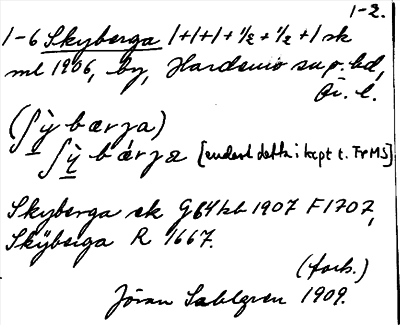 1-2.
1-6 Skyberga 1+1+1+½+½+1 sk
ml 1906, by, Hardemo sn o. hd,
Ör. l.
(ʃỳbærja)
ʃỳ bærjæ [endast detta i kept t. FrMS]
Skyberga sk G64kb 1907 F1707,
Skÿbärga R 1667.
(forts.)
Jöran Sahlgren 1909.